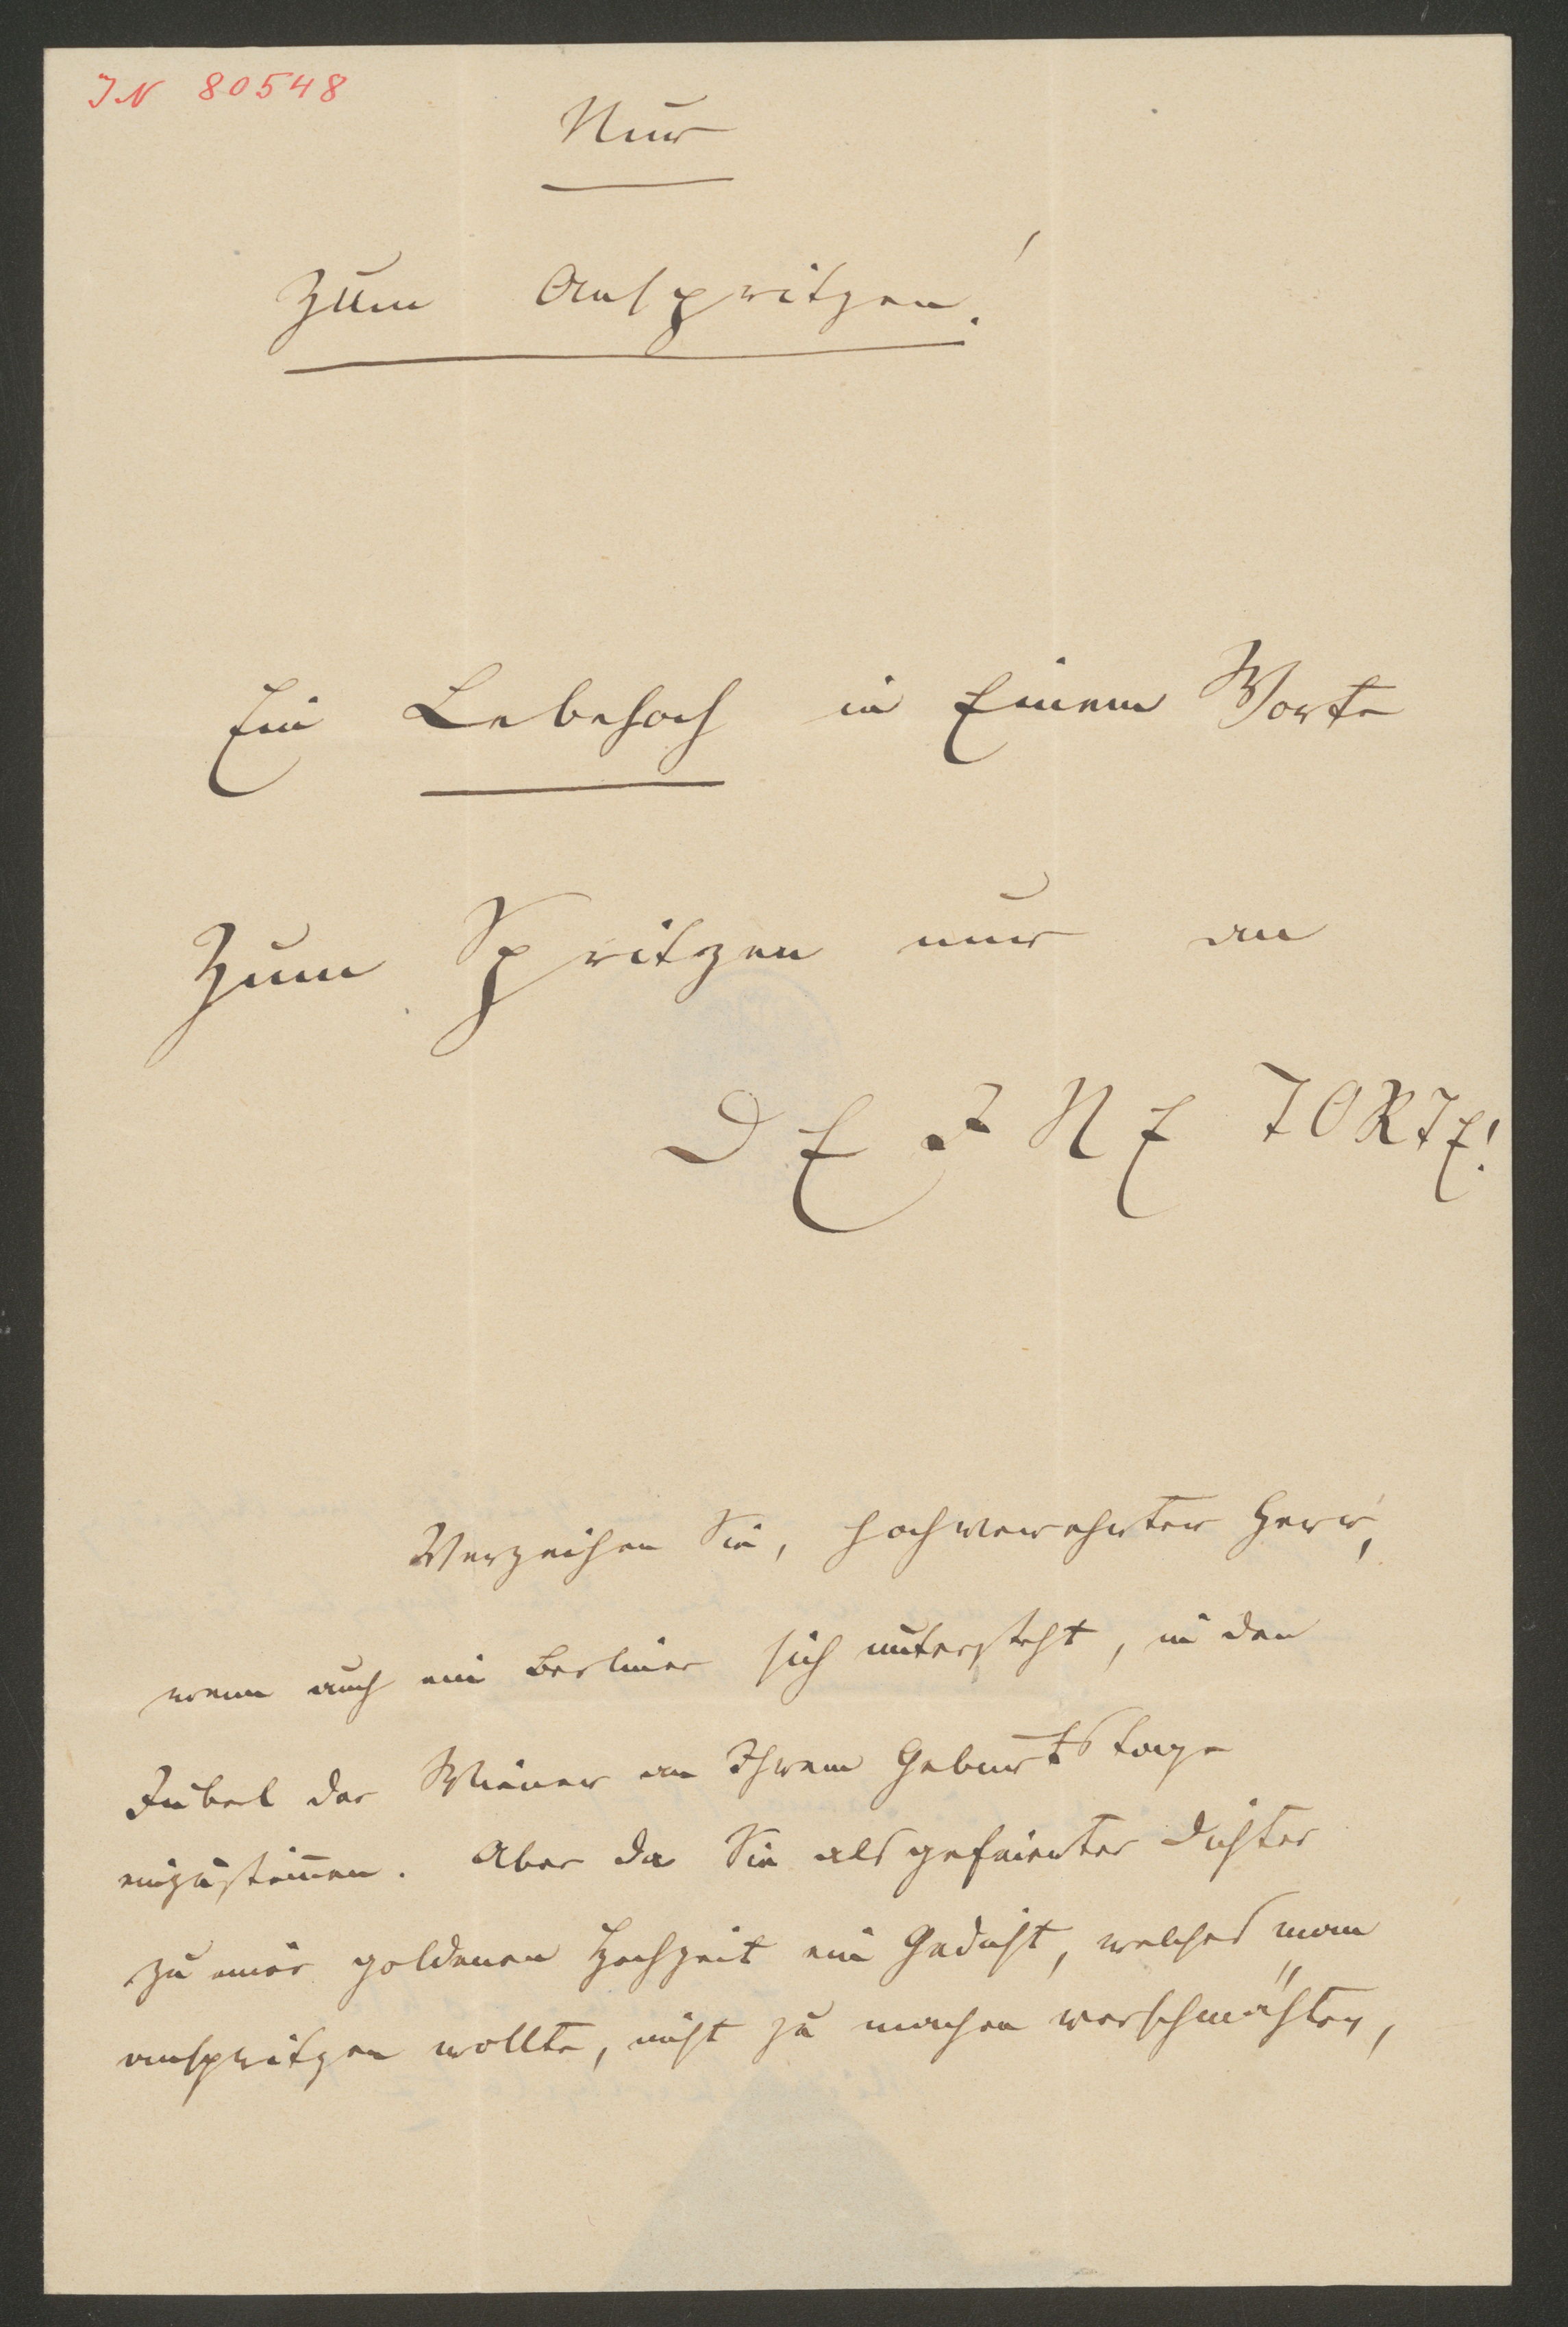 IN 80548
Nur
zum Anspritzen!
Ein Lebehoch in Einem Worte
Zum Spritzen nur an
DEINE TORTE!
Verzeihen Sie, hochverehrter Herr,
wenn auch ein Berliner sich untersteht, in den
Jubel der Wiener an Ihrem Geburtstage
einzustim̅en. Aber da Sie als gefeierter Dichter
zu einer goldenen Hochzeit ein Gedicht, welches man
anspritzen wollte, nicht zu machen verschmähten,